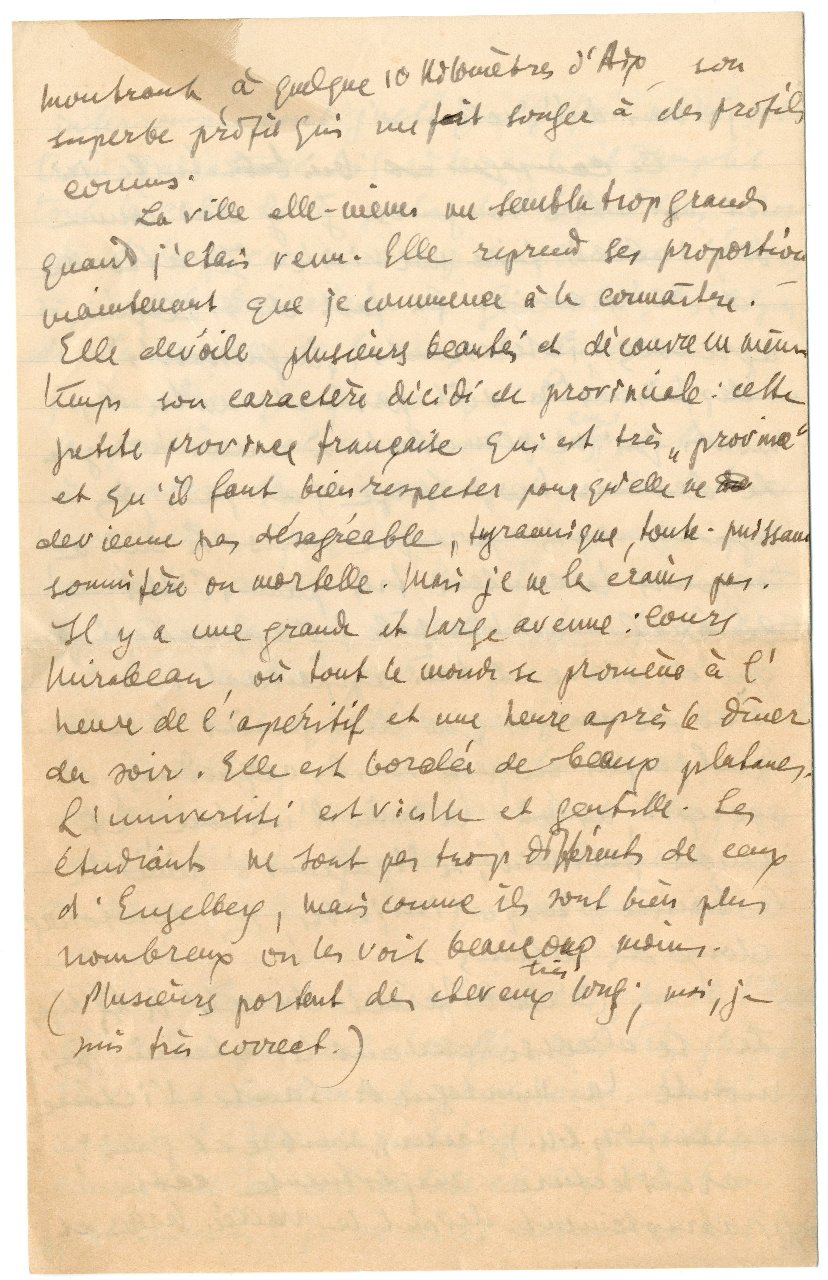 montrant à quelque 10 kilomètres d'Aix, son
superbe profil qui me fait songer à des profils
connus.
La ville elle-même me sembla trop grande
quand j'étais venu. Elle reprend ses proportion
maintenant que je commence à la connaître.
Elle dévoile plusieurs beautés et découvre en même
temps son caractère décidé de provinciale : cette
petite province française qui est très „province"
et qu'il faut bien respecter pour qu'elle ne
devienne pas désagréable, tyrannique, toute-puissan
somnifère ou mortelle. Mais je ne la crains pas.
Il y a une grande et large avenue : Cours
Mirabeau, où tout le monde se promène à l'
heure de l'apéritif et une heure après le dîner
du soir. Elle est bordée de beaux platanes.
L'université est vieille et gentille. Les
étudiants ne sont pas trop différents de ceux
d'Engelberg, mais comme ils sont bien plus
nombreux on les voit beaucoup moins.
(Plusieurs portent des cheveux très longs; moi, je
suis très correct.)